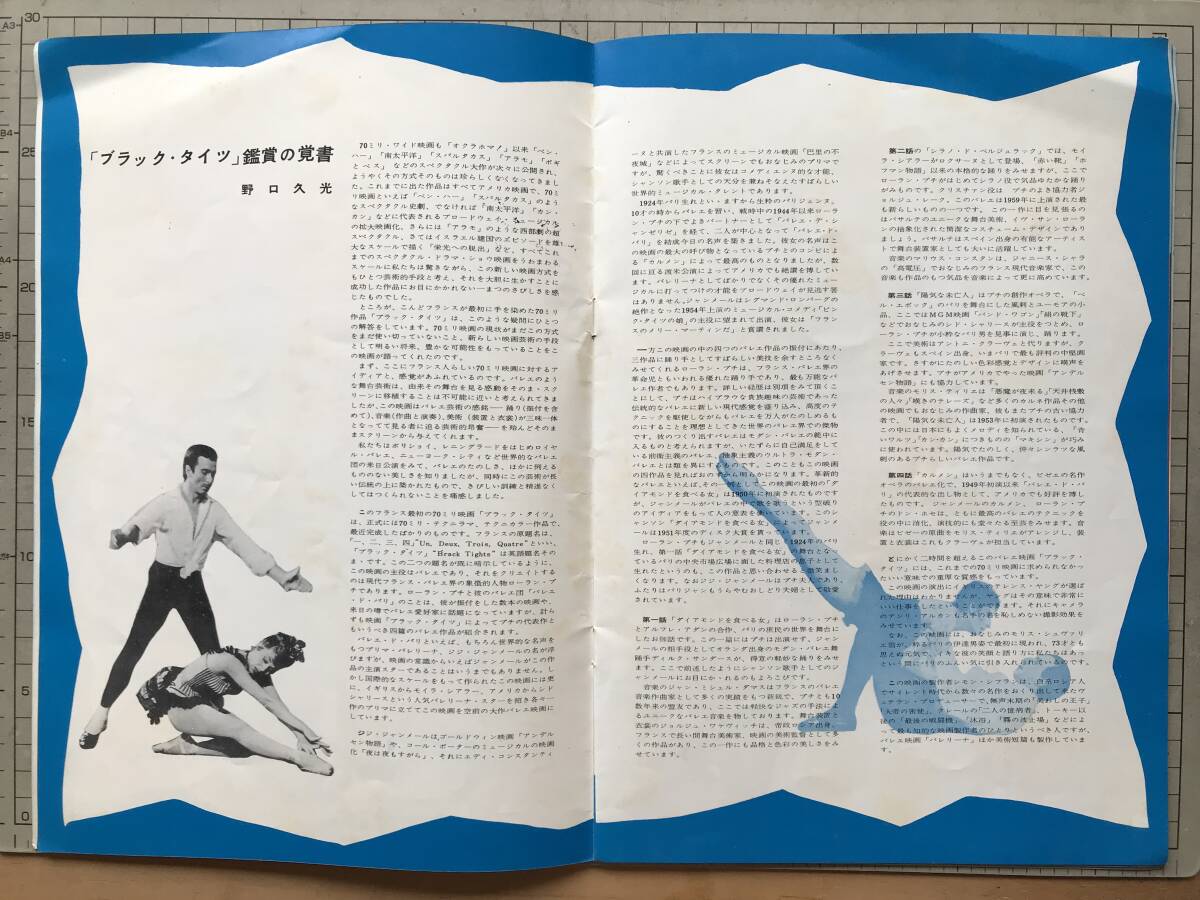 A3
30
B4
25
A4
20
15
10
5
0
「ブラック・タイツ」鑑賞の覚書
野口久光
70ミリ・ワイド映画も「オクラホマノ」以来「ベン・
ハー」「南太平洋」「スパルタカス」「アラモ」「ポギ
とベス」などのスペクタクル大作が次々に公開され、
ようやくその方式そのものは珍らしくなくなってきまし
た。これまでに出た作品はすべてアメリカ映画で、70ミ
リ映画といえば「ベン・ハー」「スパルタカス」のよう
なスペクタクル史劇、でなければ「南太平洋」「カン・
カン」などに代表されるブロードウェイ・ミュージカル
の拡大映画化、さらには「アラモ」のような西部劇の超
スペクタクル、さてはイスラエル建国のエピソードを雄
大なスケールで描く「栄光への脱出」など、すべてこれ
までのスペクタクル・ドラマ・ショウ映画をうわまわる
スケールに私たちは驚きながら、この新しい映画方式を
もひとつ芸術的手段と考え、それを大胆に生かすことに
成功した作品にお目にかかれない一まつのさびしさを感
じたものでした。
ところが、こんどフランスが最初に手を染めた70ミリ
作品「ブラック・タイツ」は、このような疑問にひとつ
の解答をしています。70ミリ映画の現状がまだこの方式
をまだ使い切っていないこと、新しい映画芸術の手段
として明るい将来、豊かな可能性をもっていることをこ
の映画が語ってくれたのです。
まず、ここにフランス人らしい70ミリ映画に対するア
イディアと、感覚があふれているのです。バレエのよう
な舞台芸術は、由来その舞台を見る感動をそのまゝスク
リーンに移植することは不可能に近いと考えられてきま
したが、この映画はバレエ芸術の感銘――踊り(振付を含
めて)、音楽(作曲と演奏)、美術(装置と衣裳)が三味一体
となってて見る者に迫る芸術的昂奮――を殆んどそのま
まスクリーンから与えてくれます。
私たちはボリショイ、レニングラードをはじめロイヤ
ル・バレエ、ニューヨーク・シティなど世界的なバレエ
団の来日公演をみて、バレエのたのしさ、ほかに例える
もののない美しさを知りましたが、同時にこの芸術が長
い伝統の上に築かれたもので、きびしい訓練と精進なく
してはつくられないことを痛感しました。
このフランス最初の70ミリ映画「ブラック・タイツ」
は、正式には70ミリ・テクニラマ、テクニカラー作品で、
最近完成したばかりのものです。フランスの原題名は、
「一、二、三、四」"Un, Deux, Trois, Quatre"といい、
「ブラック・タイツ」"Hrack Tights"は英語題名その
まゝです。この二つの題名が既に暗示しているように、
この映画の主役はバレエであり、それをクリエイトする
のは現代フランス・バレエ界の象徴的人物ローラン・プ
チであります。ローラン・プチと彼のバレエ団「バレエ
・ド・パリ」のことは、彼が振付をした数本の映画や、
来日の噂でバレエ愛好家に話題になっていますが、計ら
ずも映画「ブラック・タイツ」によってプチの代表作と
もいうべき四篇のバレエ作品が紹介されます。
バレエ・ド・パリといえば、もちろん世界的な名声を
もつプリマ・バレリーナ、ジジ・ジャンメールの名が浮
びますが、映画の常識からいえばジジ・ジャンメールがこの作
品の主演スターであることはいうまでもありません。し
かし国際的なスケールをもって作られたこの映画には更
に、イギリスからモイラ・シアラー、アメリカからシド
シャリースという人気バレリーナ・スターを招き各一
作のプリマに立ててこの映画を空前の大作バレエ映画に
しています。
ジジ・ジャンメールはゴールドウィン映画「アンデル
セン物語」や、コール・ポーターのミュージカルの映画
化「夜は夜もすがら」、それにエディ・コンスタンティ
ーヌと共演したフランスのミュージカル映画「巴里の不
夜城」などによってスクリーンでもおなじみのプリマで
すが、驚くべきことに彼女はコメディエンヌ的な才能、
シャンソン歌手としての天分を兼ねそなえたすばらしい
世界的ミュージカル・タレントであります。
1924年パリ生れといいますから生粋のパリジェンヌ、
10才の時からバレエを習い、戦時中の1944年以来ローラ
ン・プチの下でよきパートナーとして「バレエ・デ・シ
ャンゼリゼ」を経て、二人が中心となって「バレエ・ド・
パリ」を結成今日の名声を築きました。彼女の名声はこ
の映画の最大の呼び物となっているプチとのコンビによ
る「カルメン」によって最高のものとなりましたが、数
回に亘る渡米公演によってアメリカでも絶讃を博してい
ます。バレリーナとしてばかりでなくその優れたミュー
ジカルに打ってつけの才能をブロードウェイが見逃す筈
はありません。ジャンメールはシグマンド・ロンバーグの
絶作となった1954年上演のミュージカル・コメディ「ピン
ク・タイツの娘」の主役に望まれて出演、彼女は「フラン
スのメリー・マーティンだ」と賞讃されました。
一方この映画の中の四つのバレエ作品の振付にあたり、
三作品に踊り手としてすばらしい美技を余すところなく
みせてくれるローラン・プチは、フランス・バレエ界の
革命児ともいわれる優れた踊り手であり、最も万能なバ
レエ作者でもあります。詳しい経歴は別項をみて頂くこ
とにして、プチはハイブラウな貴族趣味の芸術であった
伝統的なバレエに新しい現代感覚を盛り込み、高度のテ
クニックを駆使しながらもバレエを万人がたのしめるも
のにすることを理想としてきた世界のバレエ界での傑物
です。彼のつくり出すバレエはモダン・バレエの範中に
入るものと考えられますが、いたずらに自己満足をして
いる前衛主義のバレエ、抽象主義のウルトラ・モダン・
バレエとは類を異にするものです。このこともこの映画
の四作品を見ればおのずから明らかになります。革新的
なバレエといえば、その一例としてこの映画の最初の「ダ
イアモンドを食べる女」は1950年に初演されたものです
が、ジャンメールがバレエの中で歌を歌うという型破り
のアイディアをもって人の意表を衝いています。このシ
ャンソン「ダイアモンドを食べる女」によってジャンメ
ールは1951年度のディスク大賞を貰っています。
ローラン・プチもジャンメールと同じく1924年のパリ
生れ、第一話「ダイアモンドを食べる女」の舞台となっ
ているパリの中央市場広場に面した料理店の息子として
生れたというのも、この作品と思い合わせると微笑まし
くなります。なおジジ・ジャンメールはプチ夫人であり、
ふたりはパリジャンもうらやむおしどり夫婦として敬愛
されています。
第一話「ダイアモンドを食べる女」はローラン・プチ
とアルフレ・アダンの合作、パリの庶民の世界を舞台に
したお伽話です。この一篇にはプチは出演せず、ジャン
メールの相手役としてオランダ出身のモダン・バレエ舞
踊手ディルク・サンダースが、得意の軽妙な踊りをみせ
ます。ここで前述したようにシャンソン歌手としてのジャ
ンメールにお目にかゝれるのもよろこびです。
音楽のジャン・ミシェル・ダマスはフランスのバレエ
音楽作曲家として多くの実績をもつ新鋭で、プチとも10
数年来の盟友であり、ここでは軽快なジャズの手法によ
るユニークなバレエ音楽を物しております。舞台装置と
衣裳のジョルジュ・ワケヴィッチは、帝政ロシア出身、
フランスで長い間舞台美術家、映画の美術監督として多
くの作品があり、この一作にも品格と色彩の美しさをみ
せています。
第二話の「シラノ・ド・ベルジュラック」では、モイ
ラ・シアラーがロクサーヌとして登場、「赤い靴」「ホ
フマン物語」以来の本格的な踊りをみせますが、ここで
ローラン・プチがはじめてシラノ役で気品ゆたかな踊り
がみものです。クリスチャン役は プチのよき協力者ジ
ョルジュ・レーク。このバレエは1959年に上演された最
も新しいものの一つです。この一作に目を見張るの
はバサルテのユニークな舞台美術、イヴ・サン・ローラ
ンの抽象化された簡潔なコスチューム・デザインであり
ましょう。バサルテはスペイン出身の有能なアーティス
トで舞台装置家としても大いに活躍しています。
音楽のマリウス・コンスタンは、ジャニーヌ・シャラ
の「高電圧」でおなじみのフランス現代音楽家で、この
音楽も作品のもつ気品を音楽によって更に高めています。
第三話「陽気な未亡人」はプチの創作オペラで、「ベ
ル・エポック」のパリを舞台にした風刺とユーモアの小
品、ここではMGM映画「バンド・ワゴン」「絹の靴下」
などでおなじみのシド・シャリースが出役をつとめ、ロ
ーラン・プチが小粋なパリ男を見事に演じ、踊ります。
ここで美術はアントニ・クラーヴェと代りますが、クラ
ーヴェもスペイン出身、いまパリで最も評判の中堅画
家です。さすがにたのしい色彩感覚とデザインに瞬声を
あげさせます。プチがアメリカでやった映画「アンデル
セン物語」にも協力しています。
音楽のモリス・ティリエは「悪魔が夜来る」「天井棧敷
の人々」「嘆きのテレーズ」など多くのカルネ作品その他
の映画でもおなじみの作曲家、彼もまたプチの古い協力
者で、「陽気な未亡人」は1953年に初演されたものです。
この中には日本にもよくメロディを知られている、「青
いワルツ」「カン・カン」につきものの「マキシン」が巧み
に使われています。陽気でたのしく、仲々シンラツな風
刺のあるプチらしいバレエ作品です。
第四話「カルメン」はいうまでもなく、ビゼエの名作
オペラのバレエ化で、1949年初演以来「バレエ・ド・パ
リ」の代表的な出し物として、アメリカでも好評を博し
たものです。ジャンメールのカルメン、 ローラン・プ
チのドン・ホセは、ともに最高のバレエのテクニックを
役の中に消化、演技的にも堂々たる至芸をみせます。音
楽はビゼーの原曲をモリス・ティリエがアレンジし、装
置と衣裳はこれもクラーヴェが担当しています。
とにかく二時間を超えるこのバレエ映画「ブラック・
タイツ」には、これまでの70ミリ映画に求められなかっ
たいい意味での重厚な質感をもっています。
この映画の演出にイギリスのテレンス・ヤングが選ば
れた理由はわかりませんが、ヤングはその意味で非常に
いい仕事をしたということができます。それにキャメラ
のアンリ・アルカンも名手の名を恥しめない撮影効果を
みせています。
なお、この映画には、おなじみのモリス・シュヴァリ
エ翁が、粋なパリの伊達男姿で最初に現われ、73才とも
思えぬ元気で、イキな彼の笑顔と語り方に私たちはあっ
という間にパリのムードに引き入れられているのです。
この映画の製作者シモン・シフランは、白系ロシア人
でサイレント時代から数々の名作をおくり出して来たヴ
テラン・プロデューサーで、無声末期の「美わしの王子」
「大帝の密使」、クレールの「二人の憶病者」、トーキー以
後の「最後の戦闘機」「沐浴」「霧の波止場」などによ
って最も知的な映画製作者のひとりというべき人ですが、
バレエ映画「バレリーナ」ほか美術短篇も製作していま
す。